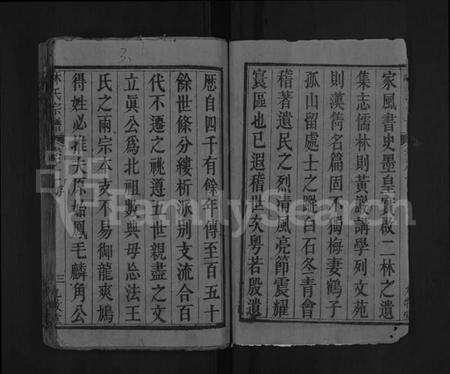 家風書史墨皇寶啟二林之遺
集志儒林則黃巖講學列文苑
則漢雋名篇固不獨梅妻鶴子
孤山留處士之蹤白石冬青會
稽著遺民之烈清風亮節震耀
寰區也已遐稽世次粵若殷遺
歷自四千有餘年傳至百五十
餘世條分縷析派別支流合百
代不遷之祧遵五世親盡之文
立眞公為北祖數典毋忘法王
氏之兩宗本支不易御龍爽鳩
得姓必推夫原始鳳毛麟角公
林氏宗譜
三
FamilySearch